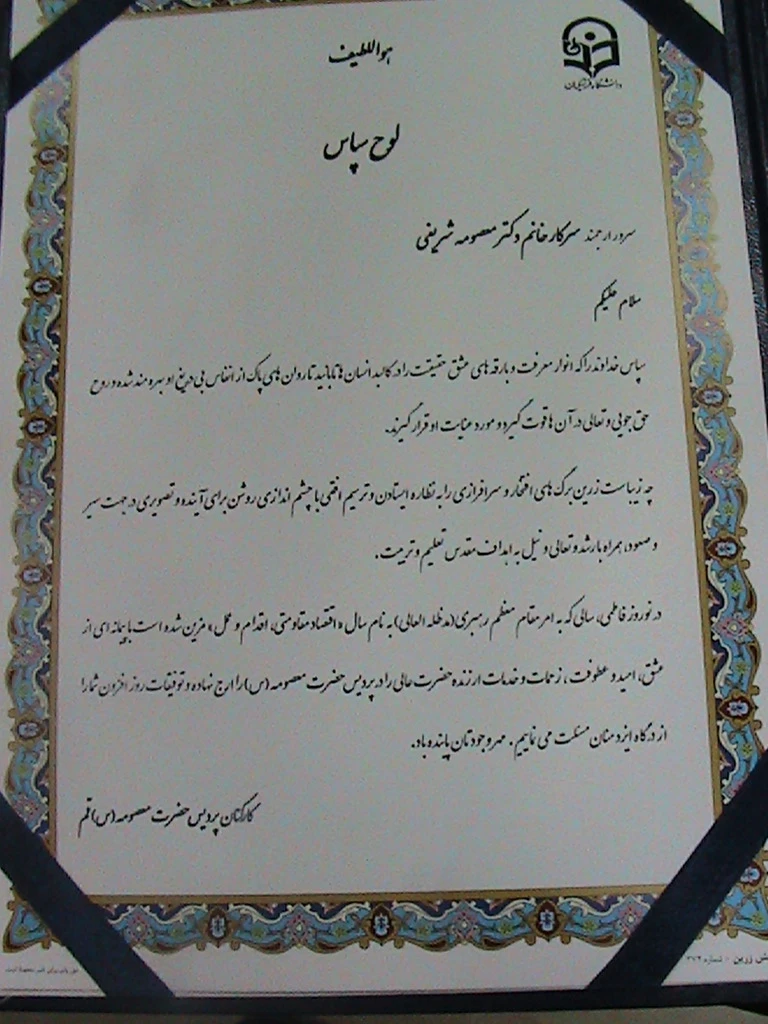 هو اللطیف
دانشگاه فرهنگیان
لوح سپاس
سرور ارجمند سرکار خانم دکتر معصومه شریفی
سلام علیکم
سپاس خداوند را که انوار معرفت و بارقه های عشق حقیقت را در کالبد انسان ها تابانید تا روان های پاک از انفاس بی دریغ او بهره مند شده و روح
حق جویی و تعالی در آن ها قوت گیرد و مورد عنایت او قرار گیرند.
چه زیباست زرین برگ های افتخار و سرافرازی را به نظاره ایستادن و ترسیم افقی با چشم اندازی روشن برای آینده و تصویری در جهت سیر
و صعود، همراه با رشد و تعالی و نیل به اهداف مقدس تعلیم و تربیت.
در نوروز فاطمی، سالی که به امر مقام معظم رهبری (مدظله العالی) به نام سال «اقتصاد مقاومتی، اقدام و عمل» مزین شده است با پیمانه ای از
عشق، امید و عطوفت، زحمات و خدمات ارزنده حضرت عالی را در پردیس حضرت معصومه (س) را ارج نهاده و توفیقات روز افزون شما را
از درگاه ایزد منان مسئلت می نماییم. مهر وجودتان پاینده باد.
کارکنان پردیس حضرت معصومه (س) قم
زرین - شماره ۳۷۴